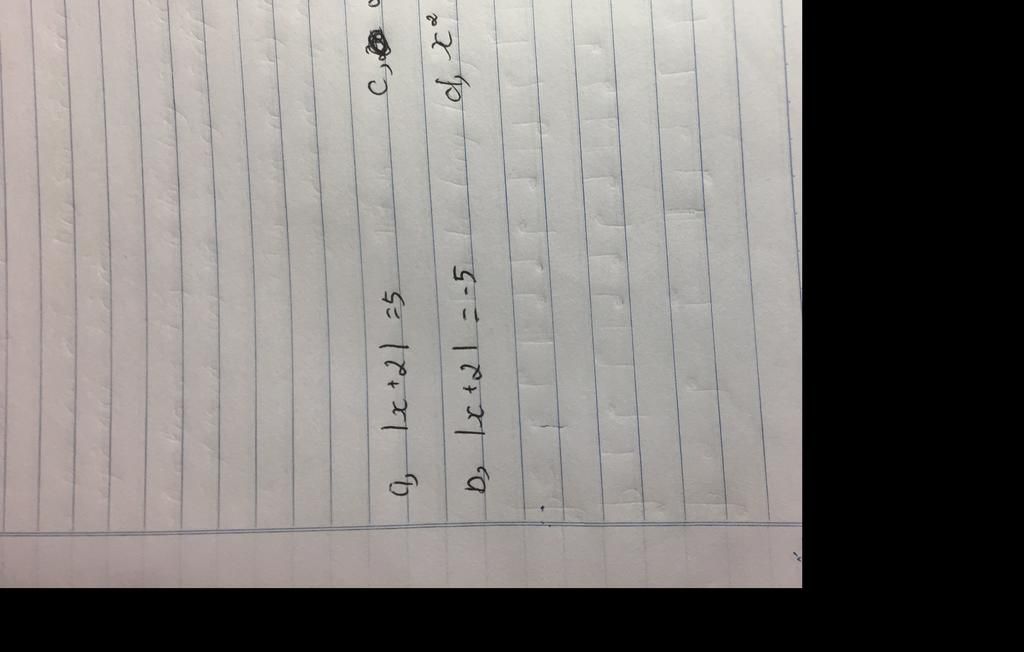 a, |x+2| =5 c,
b, |x+2| =-5 d, x²